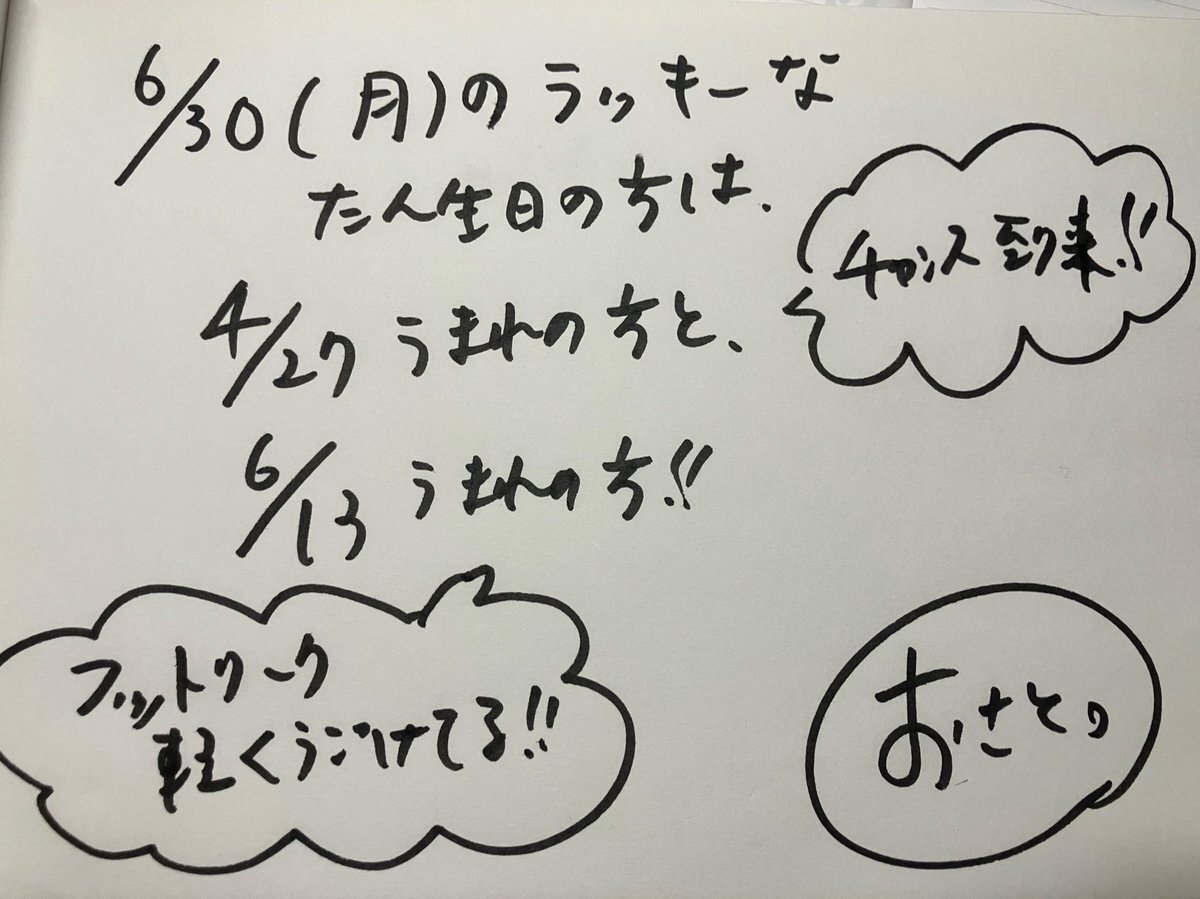 6/30(月)のラッキーな
たん生日の方は、
チャンス到来!!
4/27うまれの方と、
6/13うまれの方!!
フットワーク
軽くうごけてる!!
おさとり